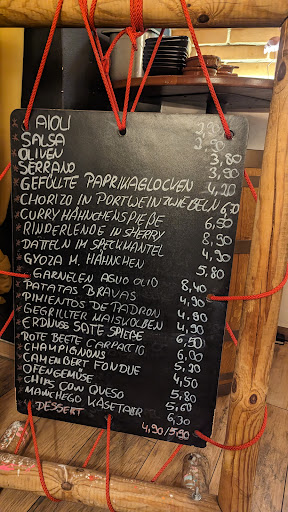 * AIOLI 2,90
* SALSA 2,90
* OLIVEN 3,80
* SERRANO 3,90
* GEFÜLLTE PAPRIKAGLOCKEN 4,20
* CHORIZO IN PORTWEINZWIEBELN 6,20
* CURRY HÄHNCHENSPIEßE 6,50
* RINDERLENDE IN SHERRY 8,90
* DATTELN IM SPECKMANTEL 4,90
* GYOZA M. HÄHNCHEN 5,80
* GARNELEN AGLIO OLIO 8,40
* PATATAS BRAVAS 4,90
* PIMIENTOS DE PADRON 4,80
* GEGRILLTER MAISKOLBEN 4,90
* ERDNUSS SATE SPIEßE 6,50
* ROTE BEETE CARPACCIO 6,00
* CHAMPIGNONS 5,20
* CAMEMBERT FONDUE 4,50
* OFENGEMÜSE 5,80
* CHIPS CON QUESO 5,60
* MANCHEGO KÄSE 6,30
* DESSERT 4,90/5,90